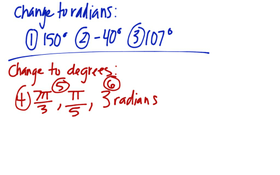 Change to radians:
① 150° ② -40° ③ 107°
Change to degrees:
④ 7π/3, ⑤ π/5, ⑥ 3 radians